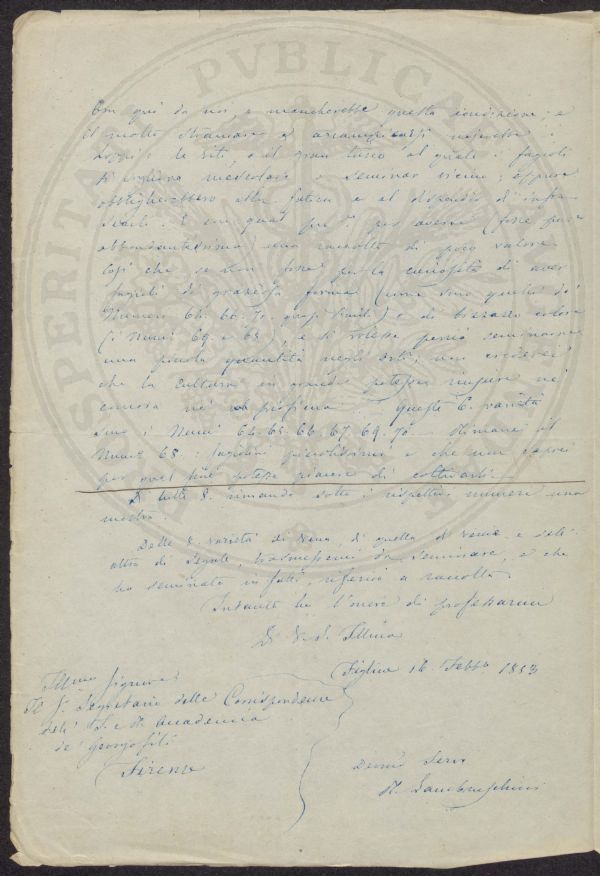 PVBLICAE
PROSPERITATI
qui da noi, e mancherebbe questa condizione; e
di molto
le viti, o il gran turco al quale i fagioli
seminar vicino; oppure
obbligherebbero alla fatica e al dispendio d'infra
scarli. E con qual pro? per avere (fosse pure
abbondantissima) una raccolta di poco valore
Così che se non fosse per la curiosità di aver
fagioli di graziosa forma (come sono quelli de'
Numeri 64. 66. 70. quasi simili) e di bizzarro colore
(i Numi 69. e 65), e si volesse perciò seminarne
una piccola quantità negli orti, non crederei
che la cultura in grande potesse riuscire nè
comoda nè profittevole. Queste 6. varietà
sono i Numi 64. 65. 66. 67. 69. 70. Rimane il
Num. 68: fagiolini piccolissimi e che non saprei
per qual fine potesse piacere di coltivarli.
Di tutte 8. rimando sotto i rispettivi numeri una
mostra.
Delle varietà di di quella di e dell'
altra di trasmessemi da seminare, e che
ho seminate infatti, riferirò a raccolta.
Intanto ho l'onore di professarmi
Di V. S. Illma
Figline 16 Febbo 1853
Illmo Signore
Il S. Segretario delle Corrispondenze
dell' I. e R. Accademia
de' Georgofili
Firenze
Devmo Servo
R. Lambruschini